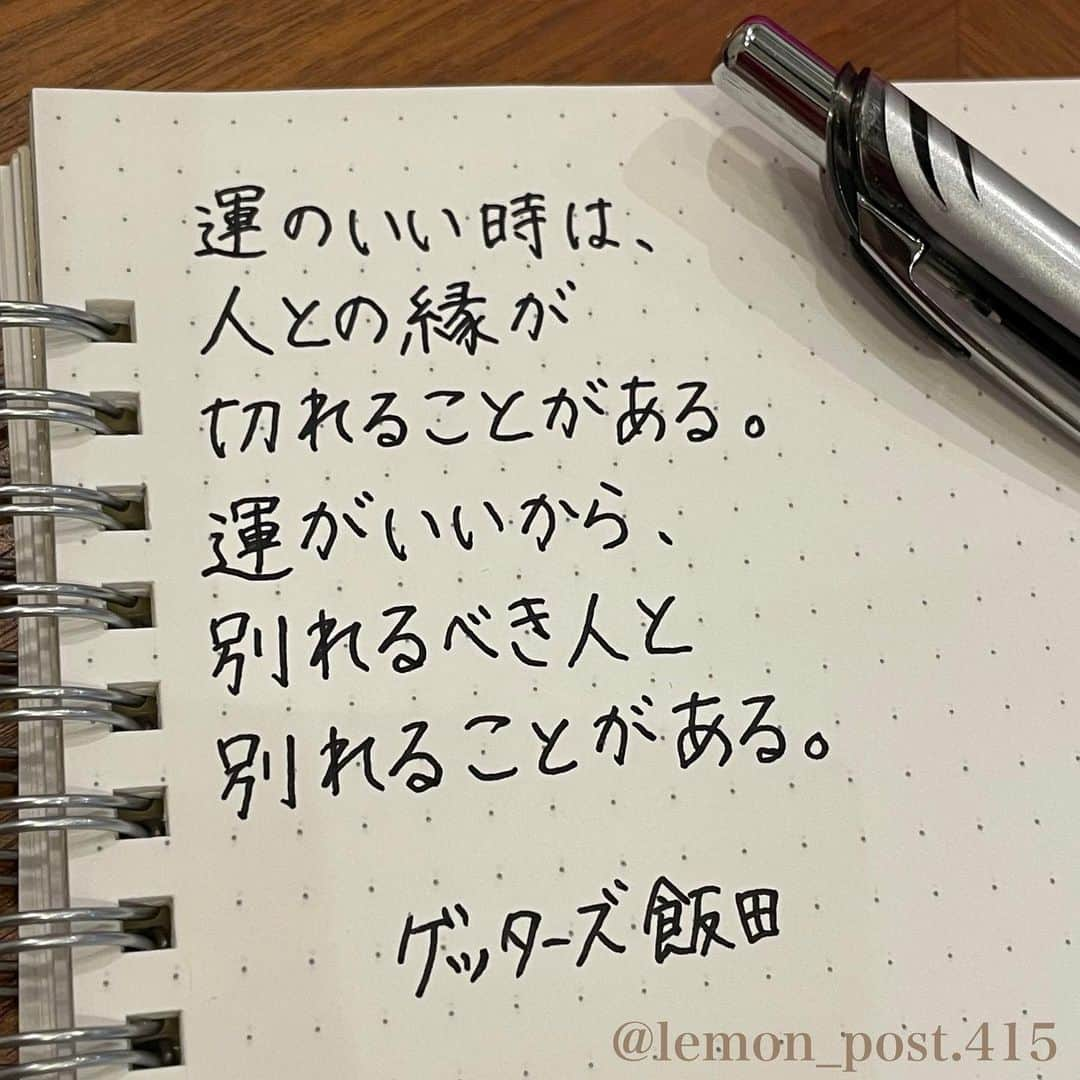 運のいい時は、
人との縁が
切れることがある。
運がいいから、
別れるべき人と
別れることがある。
ゲッターズ飯田
@lemon_post.415